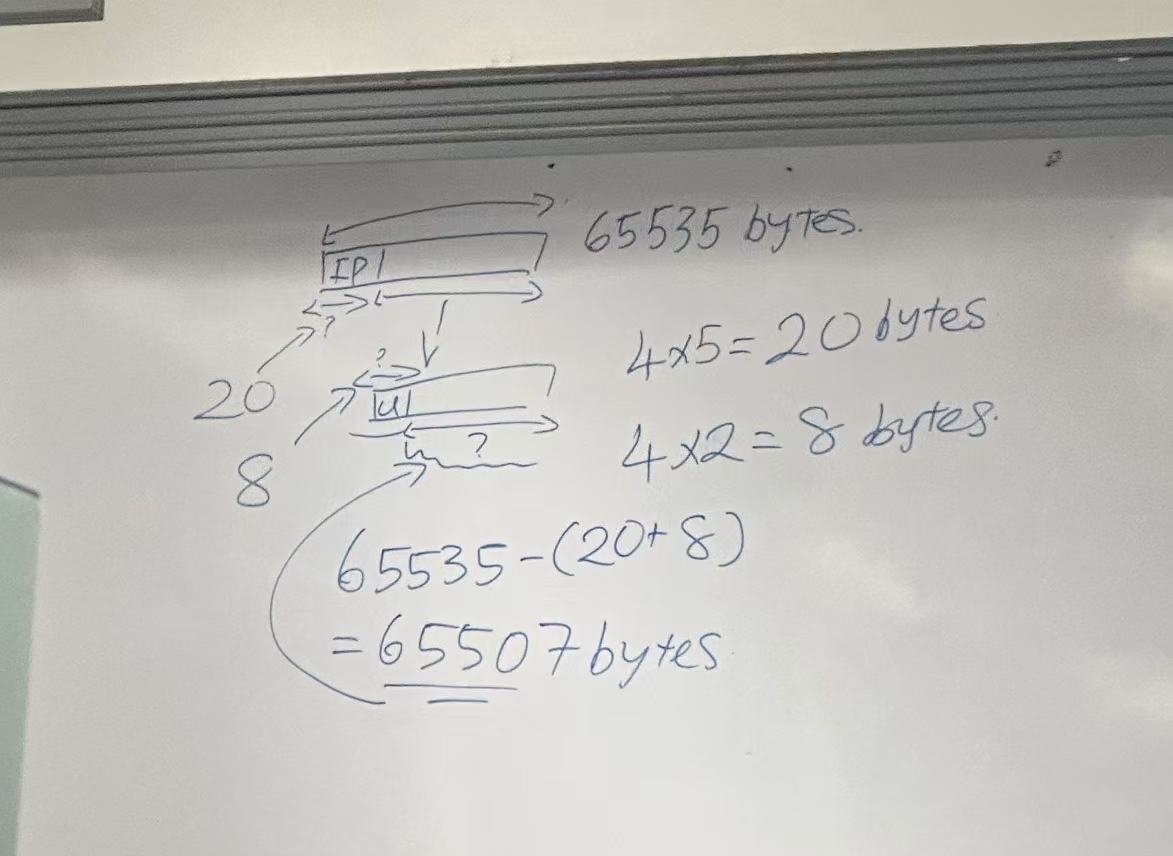 65535 bytes.
IP
?
20
4x5=20bytes
?
U
8
?
4x2=8 bytes.
65535-(20+8)
=65507bytes